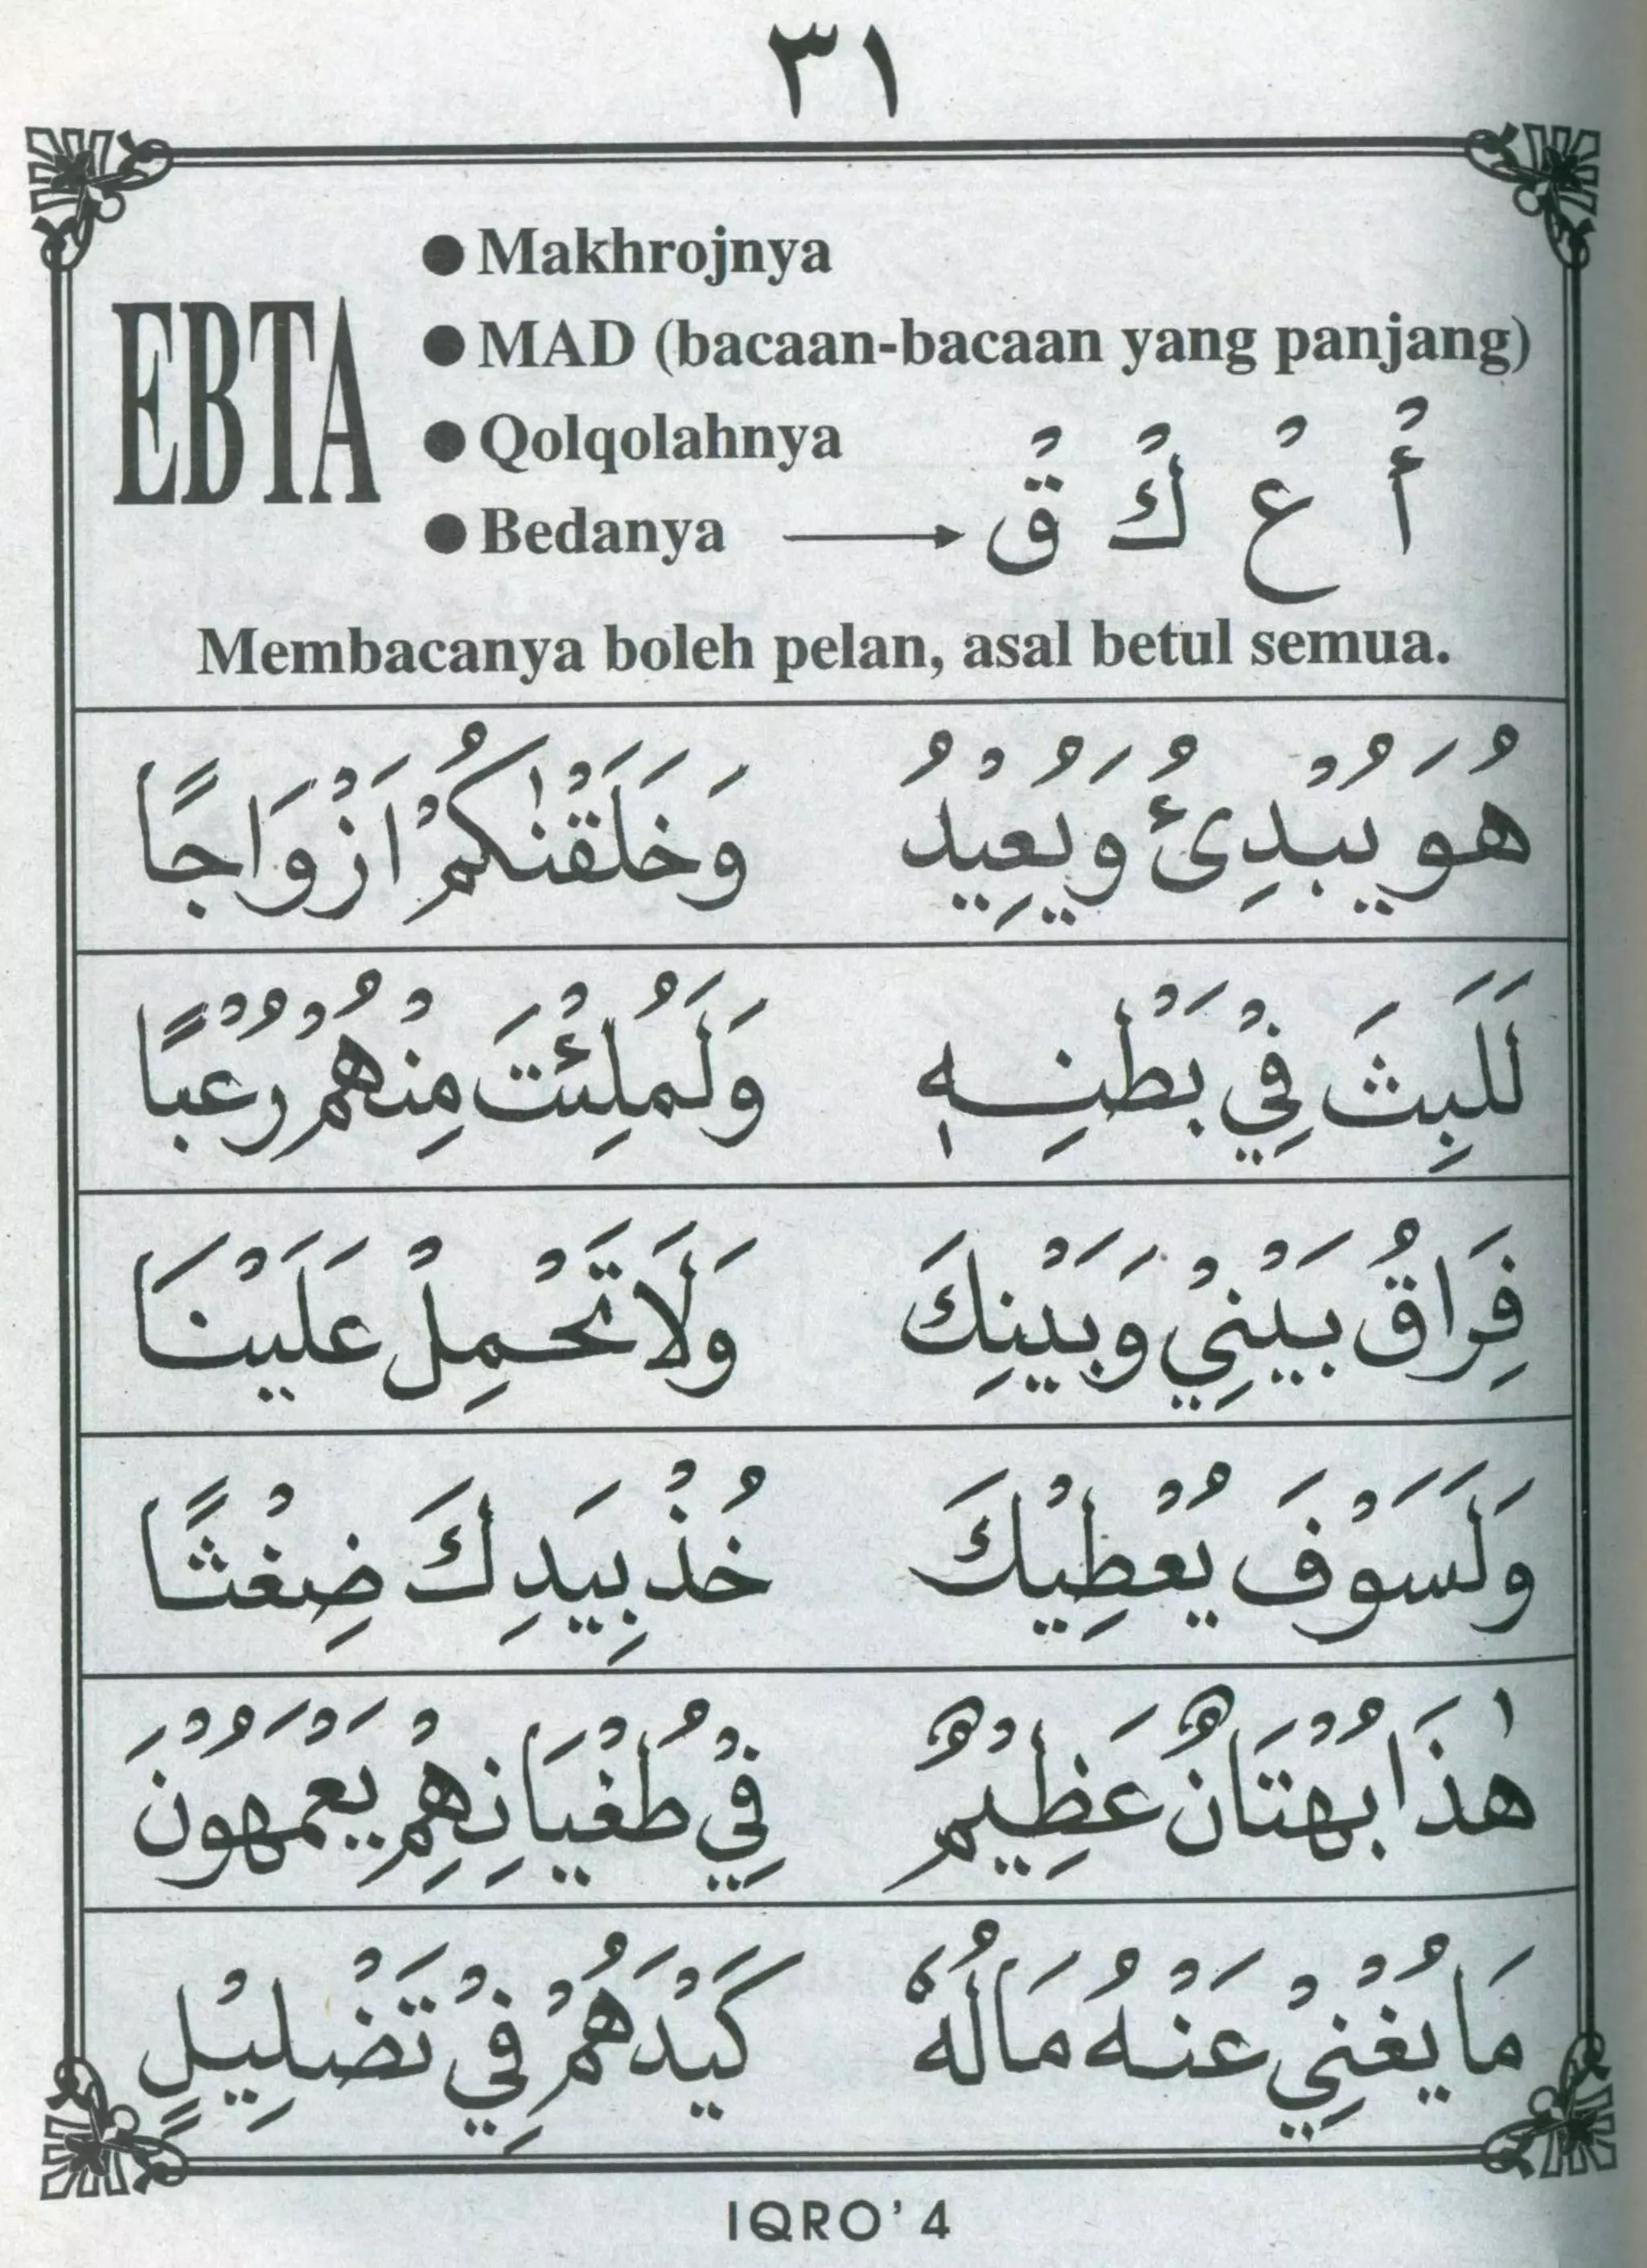 ٣١
EBTA
● Makhrojnya
● MAD (bacaan-bacaan yang panjang)
● Qolqolahnya
● Bedanya → أُ عُ كُ قُ
Membacanya boleh pelan, asal betul semua.
هُوَ يُبْدِئُ وَيُعِيْدُ وَخَلَقْنٰكُمْ اَزْوَاجًا
لَلَبِثَ فِيْ بَطْنِهٖ وَلَمُلِئْتَ مِنْهُمْ رُعْبًا
فِرَاقُ بَيْنِيْ وَبَيْنِكَ وَلَا تَحْمِلْ عَلَيْنَا
وَلَسَوْفَ يُعْطِيْكَ خُذْ بِيَدِكَ ضِغْثًا
هٰذَا بُهْتَانٌ عَظِيْمٌ فِيْ طُغْيَانِهِمْ يَعْمَهُوْنَ
مَا يُغْنِيْ عَنْهُ مَالُهٗ كَيْدَهُمْ فِيْ تَضْلِيْلٍ
IQRO' 4